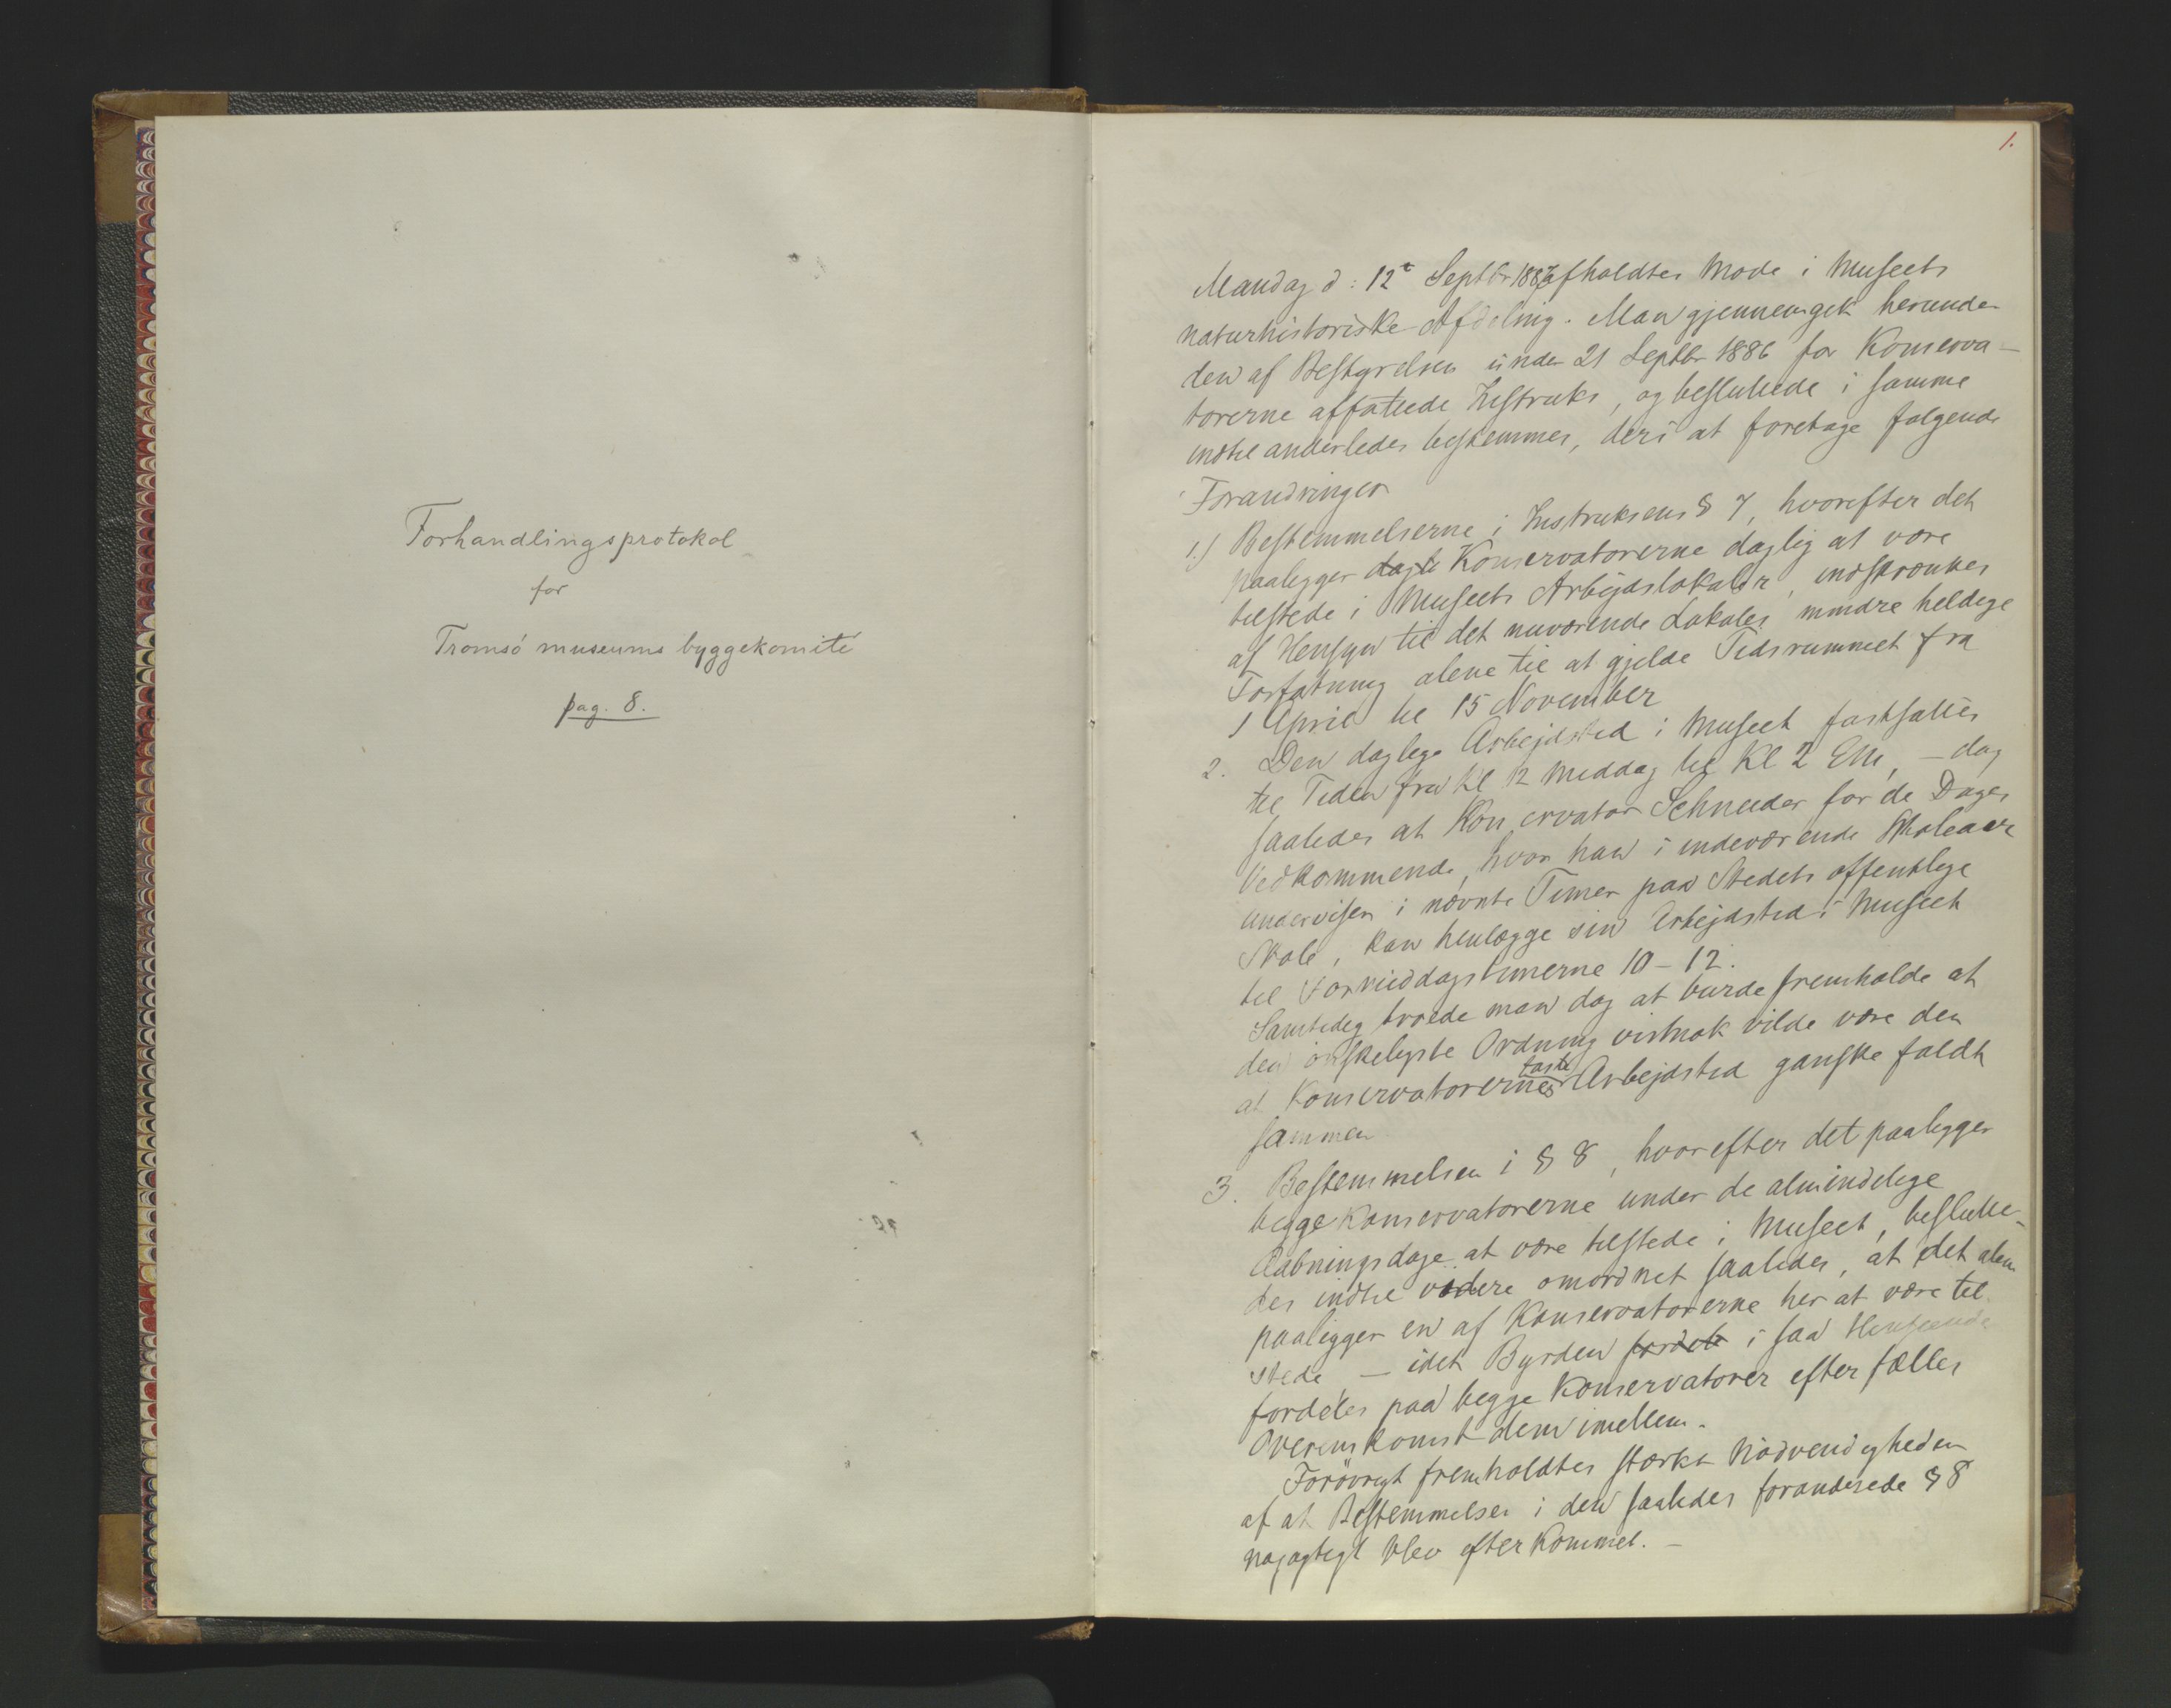 Forhandlingsprotokol
for
Tromsö museums byggekomité
pag. 8.
1.
Mandag d: 12te Septbr 1887 afholdtes Møde i Museets
naturhistoriske Afdeling. Man gjennemgik herunder
den af Bestyrelsen under 21 Septbr 1886 for Konserva-
torerne affattede Instruks, og besluttede i samme
indtil anderledes bestemmes, deri at foretage følgende
Forandringer
1.) Bestemmelserne i Instruksens § 7, hvorefter det
paaligger dagli Konservatorerne daglig at være
tilstede i Museets Arbejdslokaler, indskrænkes
af Hensyn til det nuværende Lokales mindre heldige
Forfatning alene til at gjelde Tidsrummet fra
1 April til 15 November
2. Den daglige Arbejdstid i Museet fastsattes
til Tiden fra Kl 12 Middag til Kl 2 Em, – dog
saaledes at Konservator Schneider for de Dages
Vedkommende, hvor han i indeværende Skoleaar
underviser i nævnte Timer paa Stedets offentlige
Skole, kan henlægge sin Arbejdstid i Museet
til Formiddagstimerne 10 – 12.
Samtidig troede man dog at burde fremholde at
den ønskeligste Ordning vistnok vilde være den
at Konservatorernes faste Arbejdstid ganske faldt
sammen
3. Bestemmelsen i § 8, hvorefter det paaligger
begge Konservatorerne under de almindelige
Aabningsdage at være tilstede i Museet, beslutte-
des indtil videre omordnet saaledes, at det alene
paaligger en af Konservatorerne her at være til
stede – idet Byrden fordele i saa Henseende
fordeles paa begge Konservatorer efter fælles
Overenskomst dem imellem.
Forøvrigt fremholdtes stærkt Nødvendigheden
af at Bestemmelsen i den saaledes forandrede § 8
nøjagtigt blev efterkommet. –